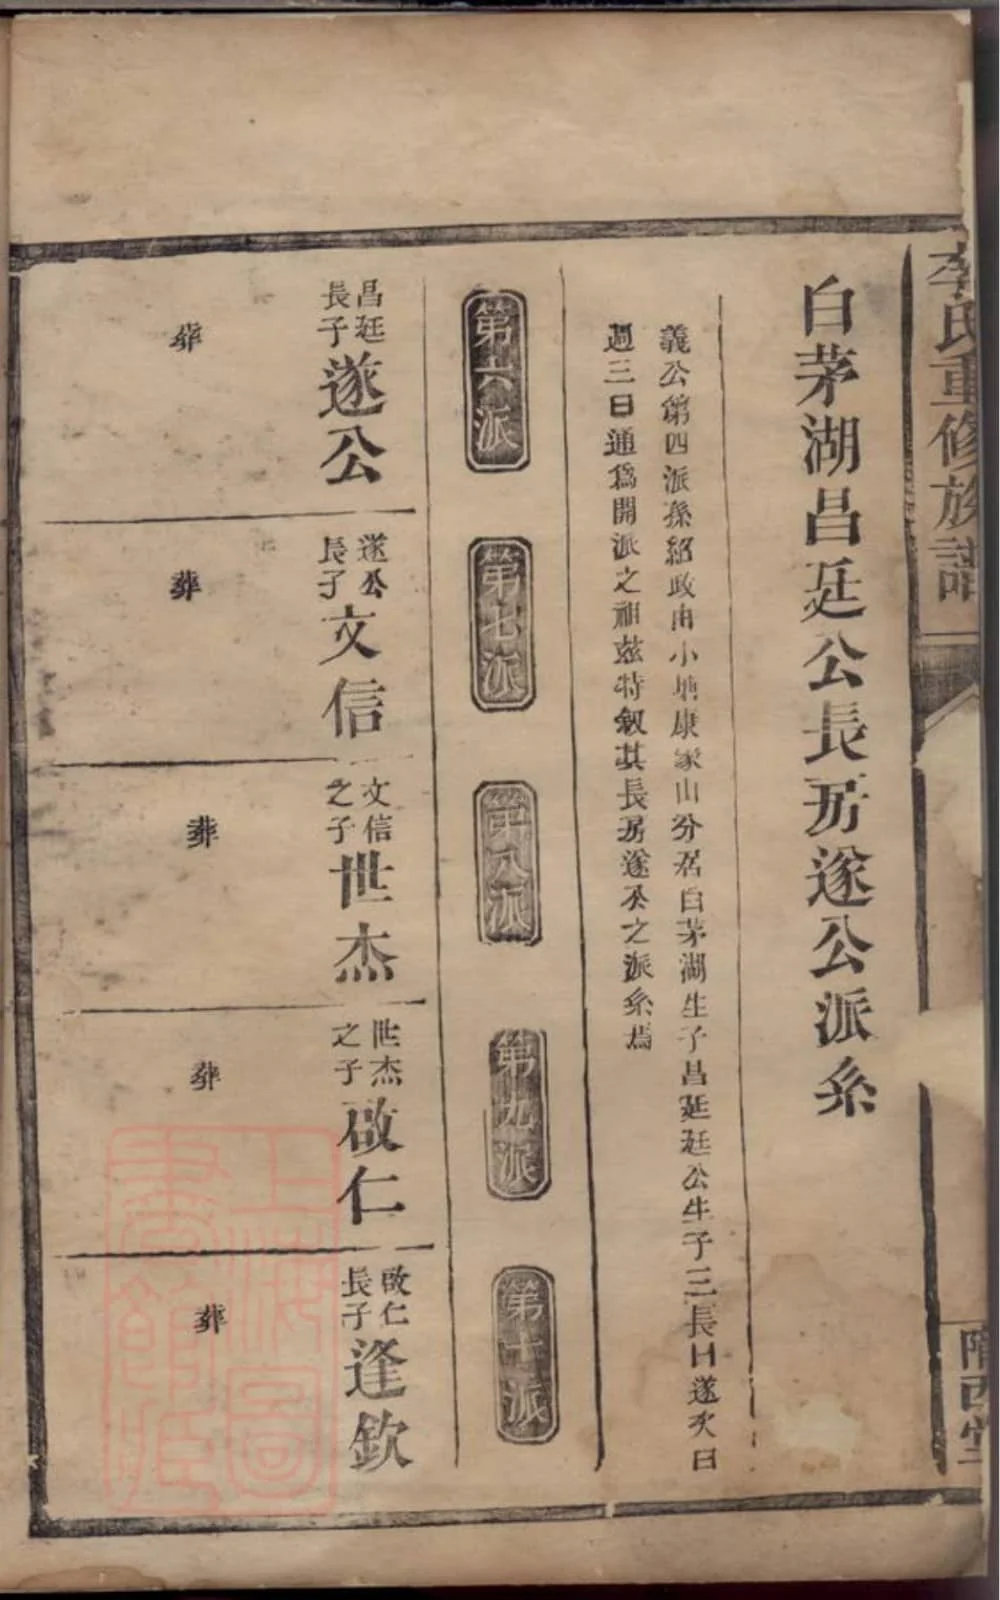 李氏重修族譜
隴西堂
白茅湖昌廷公長房遂公派系
義公第四派孫紹政由小塘康家山分居白茅湖生子昌廷廷公生子三長曰遂次曰
過三曰通爲開派之祖茲特敘其長房遂公之派系焉
第六派
第七派
第八派
第九派
第十派
昌廷
長子
遂公
葬
遂公
長子
文信
葬
文信
之子
世杰
葬
世杰
之子
啟仁
葬
啟仁
長子
逢欽
葬
上海圖
書館藏